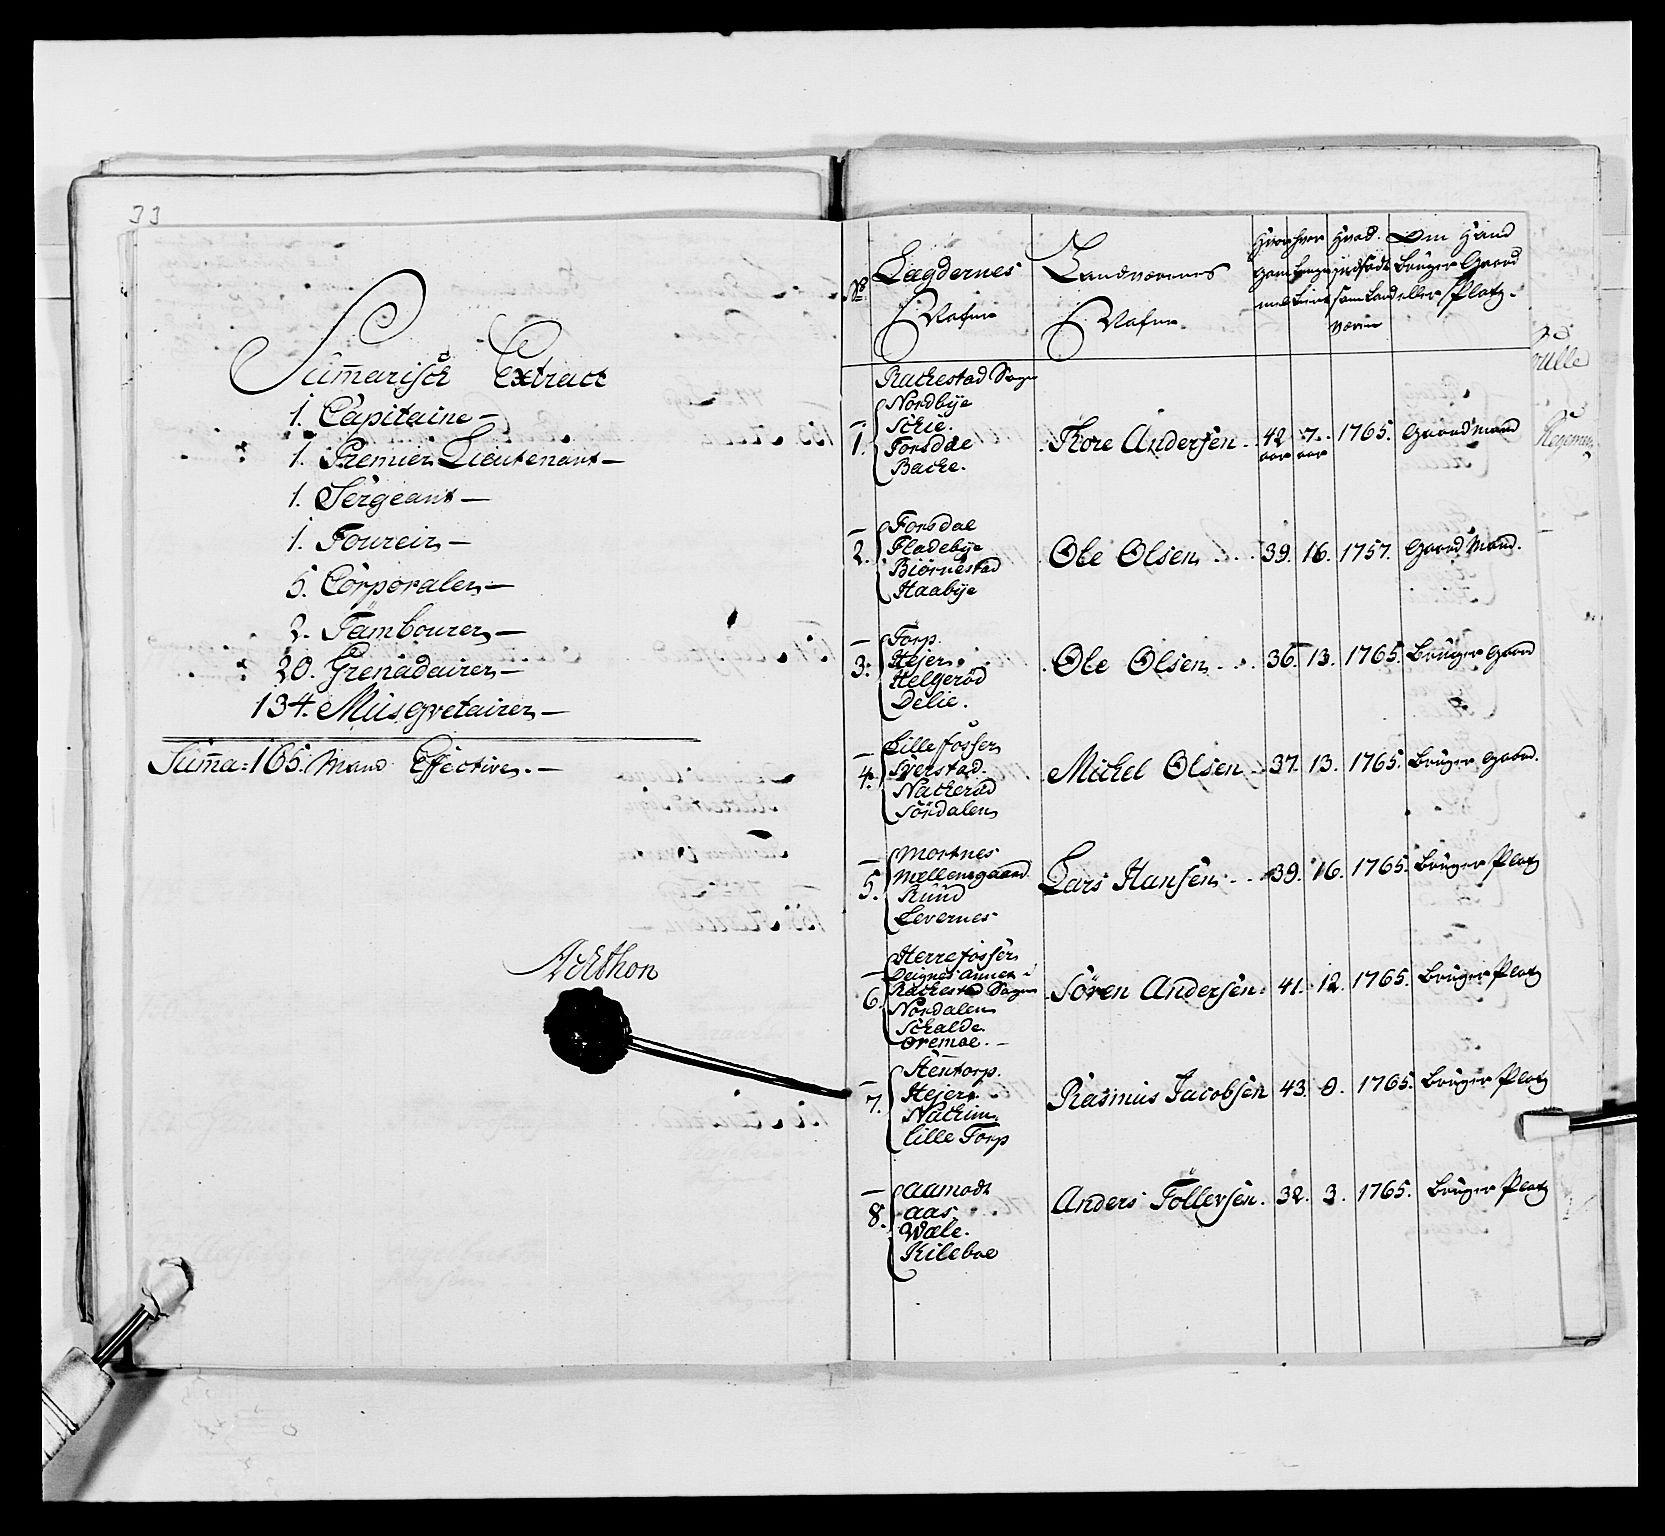 33
Summarisch Extract
1. Capitaine —
1. Premier Lieutenant —
1. Sergeant —
1. Foureir —
5. Corporaler —
2. Tambourer —
20. Grenadairer —
134. Musqvetairer —
Suma: 165. Mand Effective. —
No Lægdernes Nafne Landværernes Nafne Hvor gammel hvor længe tient Hvad Tid indsadt som Landværn Om Hand bruger Gaard eller Platz.
Rackestad Sogn
1. Nordbye
Schie.
Forsdal
Backe.
Thore Andersen. 42 aar 7. aar 1765. Gaardmand
2. Forsdal
Fladebye
Biørnestad
Haabye
Ole Olsen 39. 16. 1757. Gaard Mand.
3. Torp.
Hejer.
Helgerød
Delie.
Ole Olsen 36. 13. 1765. Bruger Gaard
4. Lillefosser
Sverstad.
Nackerød
Sördalen
Michel Olsen 37. 13. 1765. Bruger Gaard.
5. Mortnes
Mellemgaard
Ruud
Levernes
Lars Hansen 39. 16. 1765. Bruger Platz
6. Herrefosser
Deignes annex i
Rackestad Sogn
Nordalen
Schalde.
Oremoe. —
Sören Andersen. 41. 12. 1765. Bruger Platz
7. Stentorp.
Hejer
Nackim
Lille Torp
Rasmus Jacobsen 43. 9. 1765. Bruger Platz
8. Aamodt
Aas.
Wæle.
Kileboe
Anders Tollersen. 32. 3. 1765. Bruger Platz
rulle